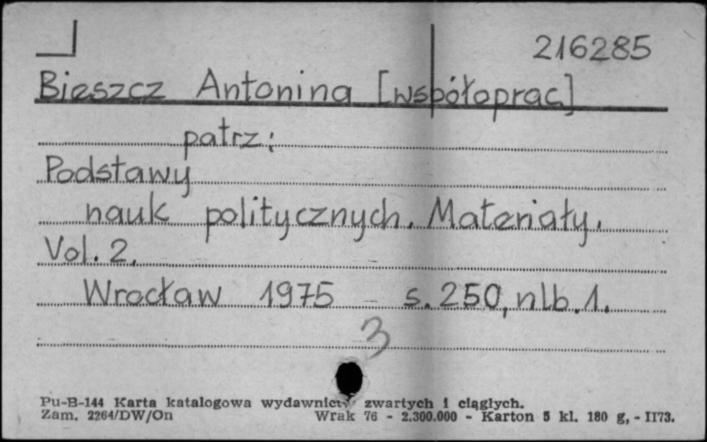 216285
Bieszcz Antonina [współoprac]
patrz:
Podstawy
nauk politycznych. Materiały.
Vol. 2.
Wrocław 1975 s. 250, nlb. 1.
3
Pu-B-144 Karta katalogowa wydawnictw zwartych i ciągłych.
Zam. 2264/DW/On Wrak 76 - 2.300.000 - Karton 5 kl. 180 g, - II73.